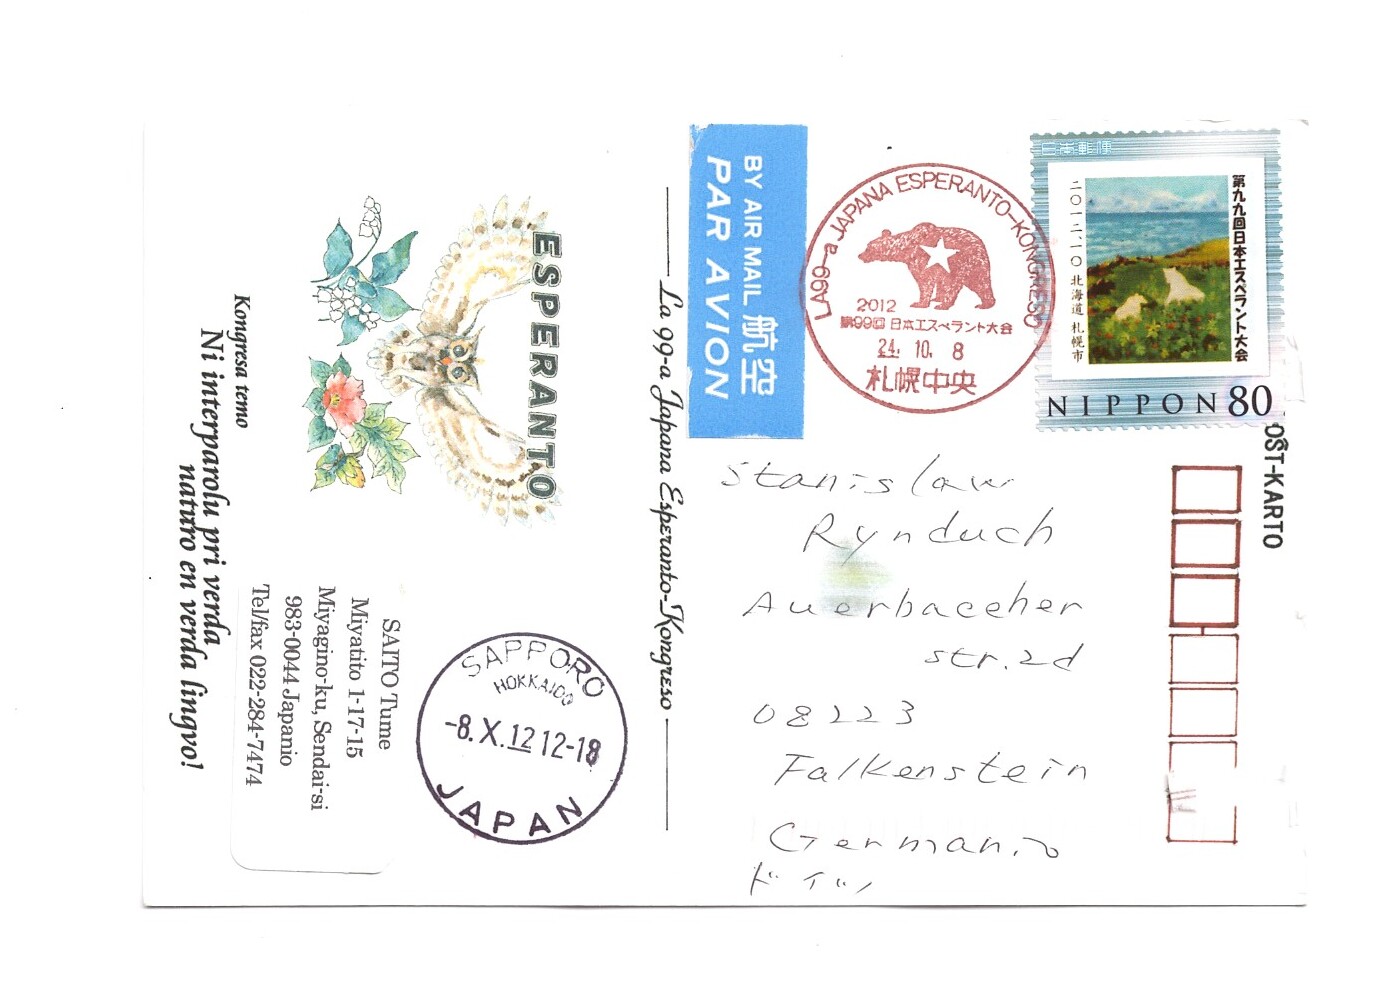 ESPERANTO
Kongresa temo
Ni interparolu pri verda
naturo en verda lingvo!
SAITO Tume
Miyatito 1-17-15
Miyagino-ku, Sendai-si
983-0044 Japanio
Tel/fax 022-284-7474
SAPPORO
HOKKAIDO
-8.X.12 12-18
JAPAN
La 99-a Japana Esperanto-Kongreso
BY AIR MAIL 航空
PAR AVION
LA 99-a JAPANA ESPERANTO-KONGRESO
2012
第99回 日本エスペラント大会
24. 10. 8
札幌中央
日本郵便
第九九回日本エスペラント大会
二〇一二、一〇 北海道 札幌市
NIPPON 80
OST-KARTO
Stanislaw
Rynduch
Auerbaceher
str. 2d
08223
Falkenstein
Germanio
ドイツ